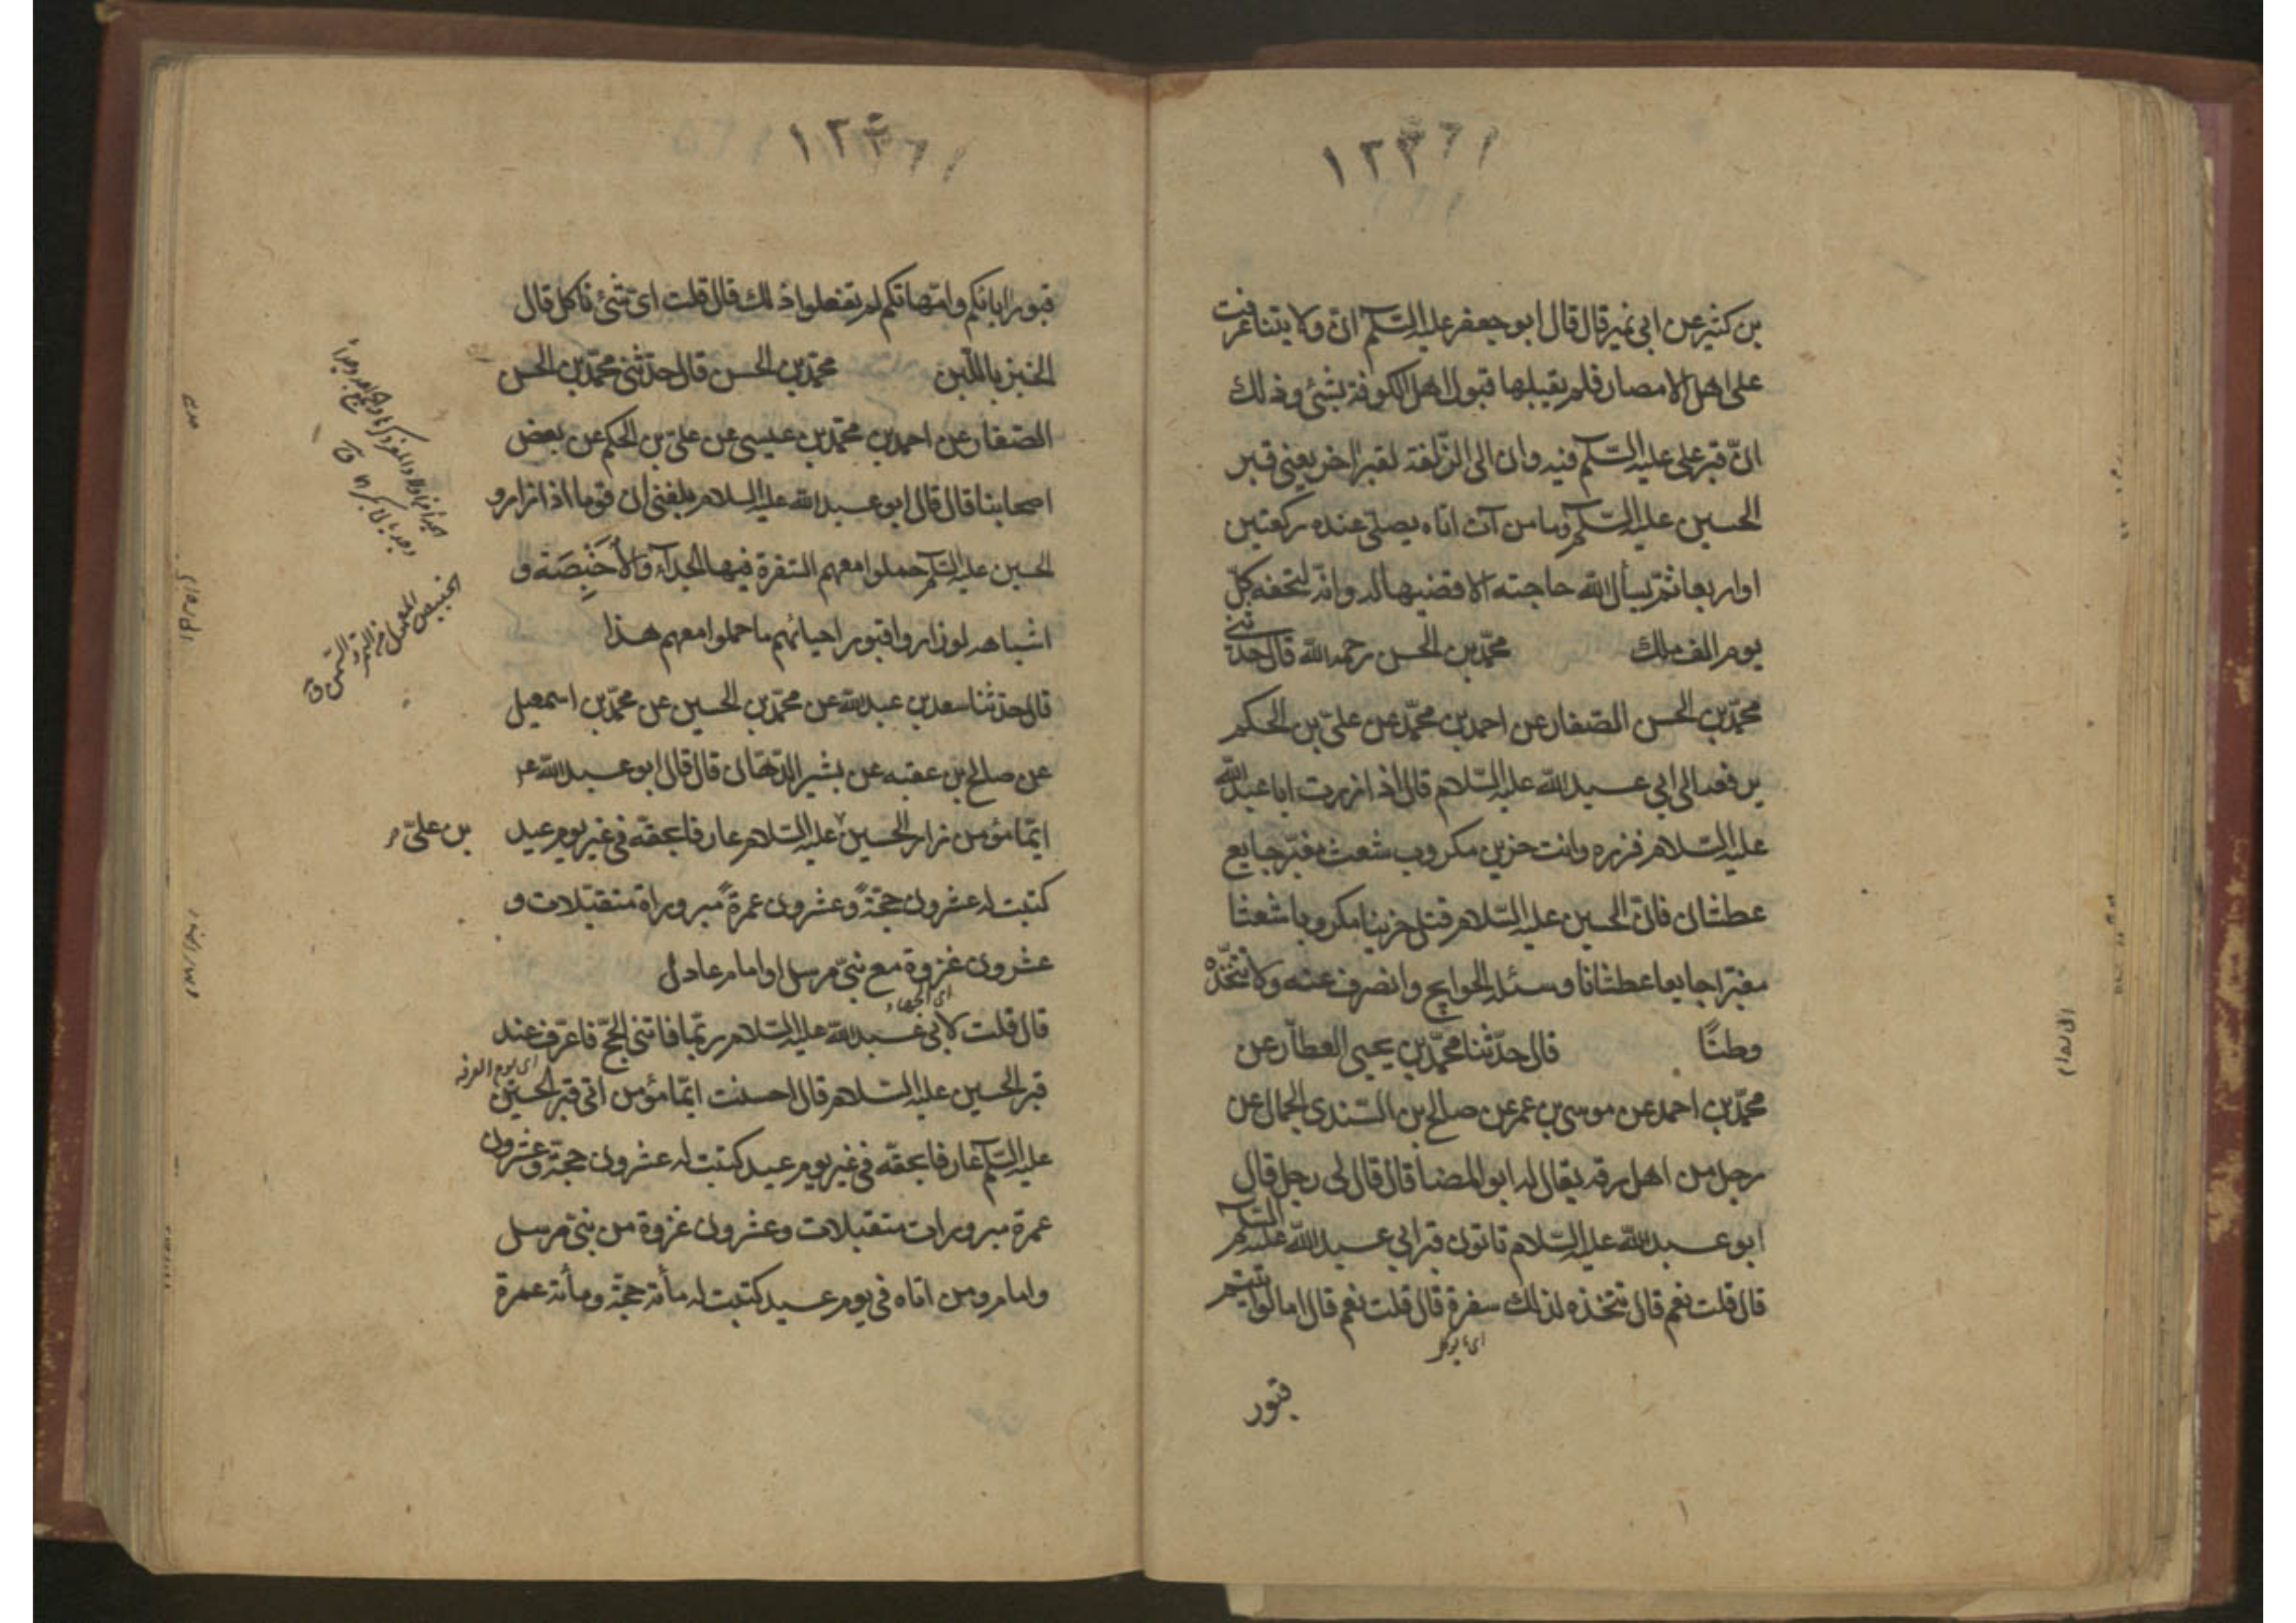 ١٢٣
بن كثير عن ابى نمير قال قال ابو جعفر عليه السلم ان ولايتنا عرضت
على اهل الامصار فلم يقبلها قبول اهل الكوفة بشئ وذلك
انّ قبر على عليه السلم فيه وان الى لزقه لقبر اخر يعنى قبر
الحسين عليه السلم وما من آت اتاه يصلى عنده ركعتين
او اربعا ثم يسأل الله حاجته الا قضيها له وانه لتحفه كلّ
يوم الف ملك محمّد بن الحسن رحمه الله قال حدثنى
محمّد بن الحسن الصّفار عن احمد بن محمّد عن علىّ بن الحكم
الى ابى عبد الله عليه السّلام قال اذا زرت ابا عبد الله
عليه السّلام فزره وانت حزين مكروب شعث مغبّر جايع
عطشان فانّ الحسين عليه السّلام قتل حزينا مكروبا شعثا
مغبّرا جايعا عطشانا وسئله الحوايج وانصرف عنه ولا تتّخذه
وطنًا قال حدّثنا محمّد بن يحيى العطّار عن
محمّد بن احمد عن موسى بن عمر عن صالح بن السّندى الجمال عن
رجل من اهل رقه يقال له ابو المضا قال قال لى رجل قال
ابو عبد الله عليه السّلام تاتون قبر ابى عبد الله عليه السلم
قال قلت نعم قال تتّخذه لذلك سفرة قال قلت نعم قال اما لو اتيتم
قبور
١٢٤
قبور ابائكم وامّهاتكم لم تفعلوا ذلك قال قلت اىّ شئ ناكل قال
الخبز باللّبن محمّد بن الحسن قال حدّثنى محمّد بن الحسن
الصّفار عن احمد بن محمّد بن عيسى عن علىّ بن الحكم عن بعض
اصحابنا قال قال ابو عبد الله عليه السلام بلغنى ان قوما اذا زاروا
الحسين عليه السلم حملوا معهم السّفرة فيها الجداء والأخبصة و
اشباهه لو زاروا قبور احبائهم ما حملوا معهم هذا
قال حدّثنا سعد بن عبد الله عن محمّد بن الحسين عن محمّد بن اسمعيل
عن صالح بن عقبه عن بشير الدّهّان قال قال ابو عبد الله ع
ايّما مؤمن زار الحسين عليه السّلام عارفا بحقّه فى غير يوم عيد
بن علىّ
كتبت له عشرون حجّة وعشرون عمرة مبروراة متقبّلات و
عشرون غزوة مع نبىّ مرسل او امام عادل
اى الجهاد
قال قلت لابى عبد الله عليه السّلام ربّما فاتنى الحجّ فاعرّف عند
اى يوم العرفه
قبر الحسين عليه السّلام قال احسنت ايّما مؤمن اتى قبر الحسين
عليه السلم عارفا بحقّه فى غير يوم عيد كتبت له عشرون حجّة وعشرون
عمرة مبرورات متقبّلات وعشرون غزوة من نبىّ مرسل
وامام ومن اتاه فى يوم عيد كتبت له مأئة حجّة ومأئة عمرة
الخبيص المعمول من التمر والسمن ق